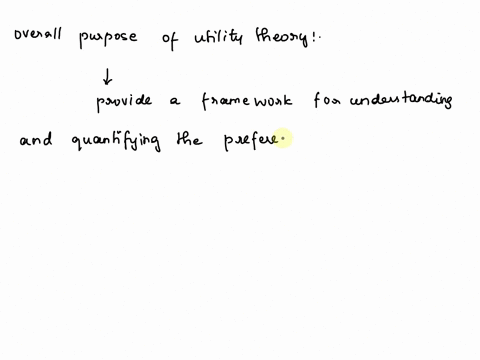 overall purpose of utility theory:-
↓
provide a framework for understanding
and quantifying the prefere